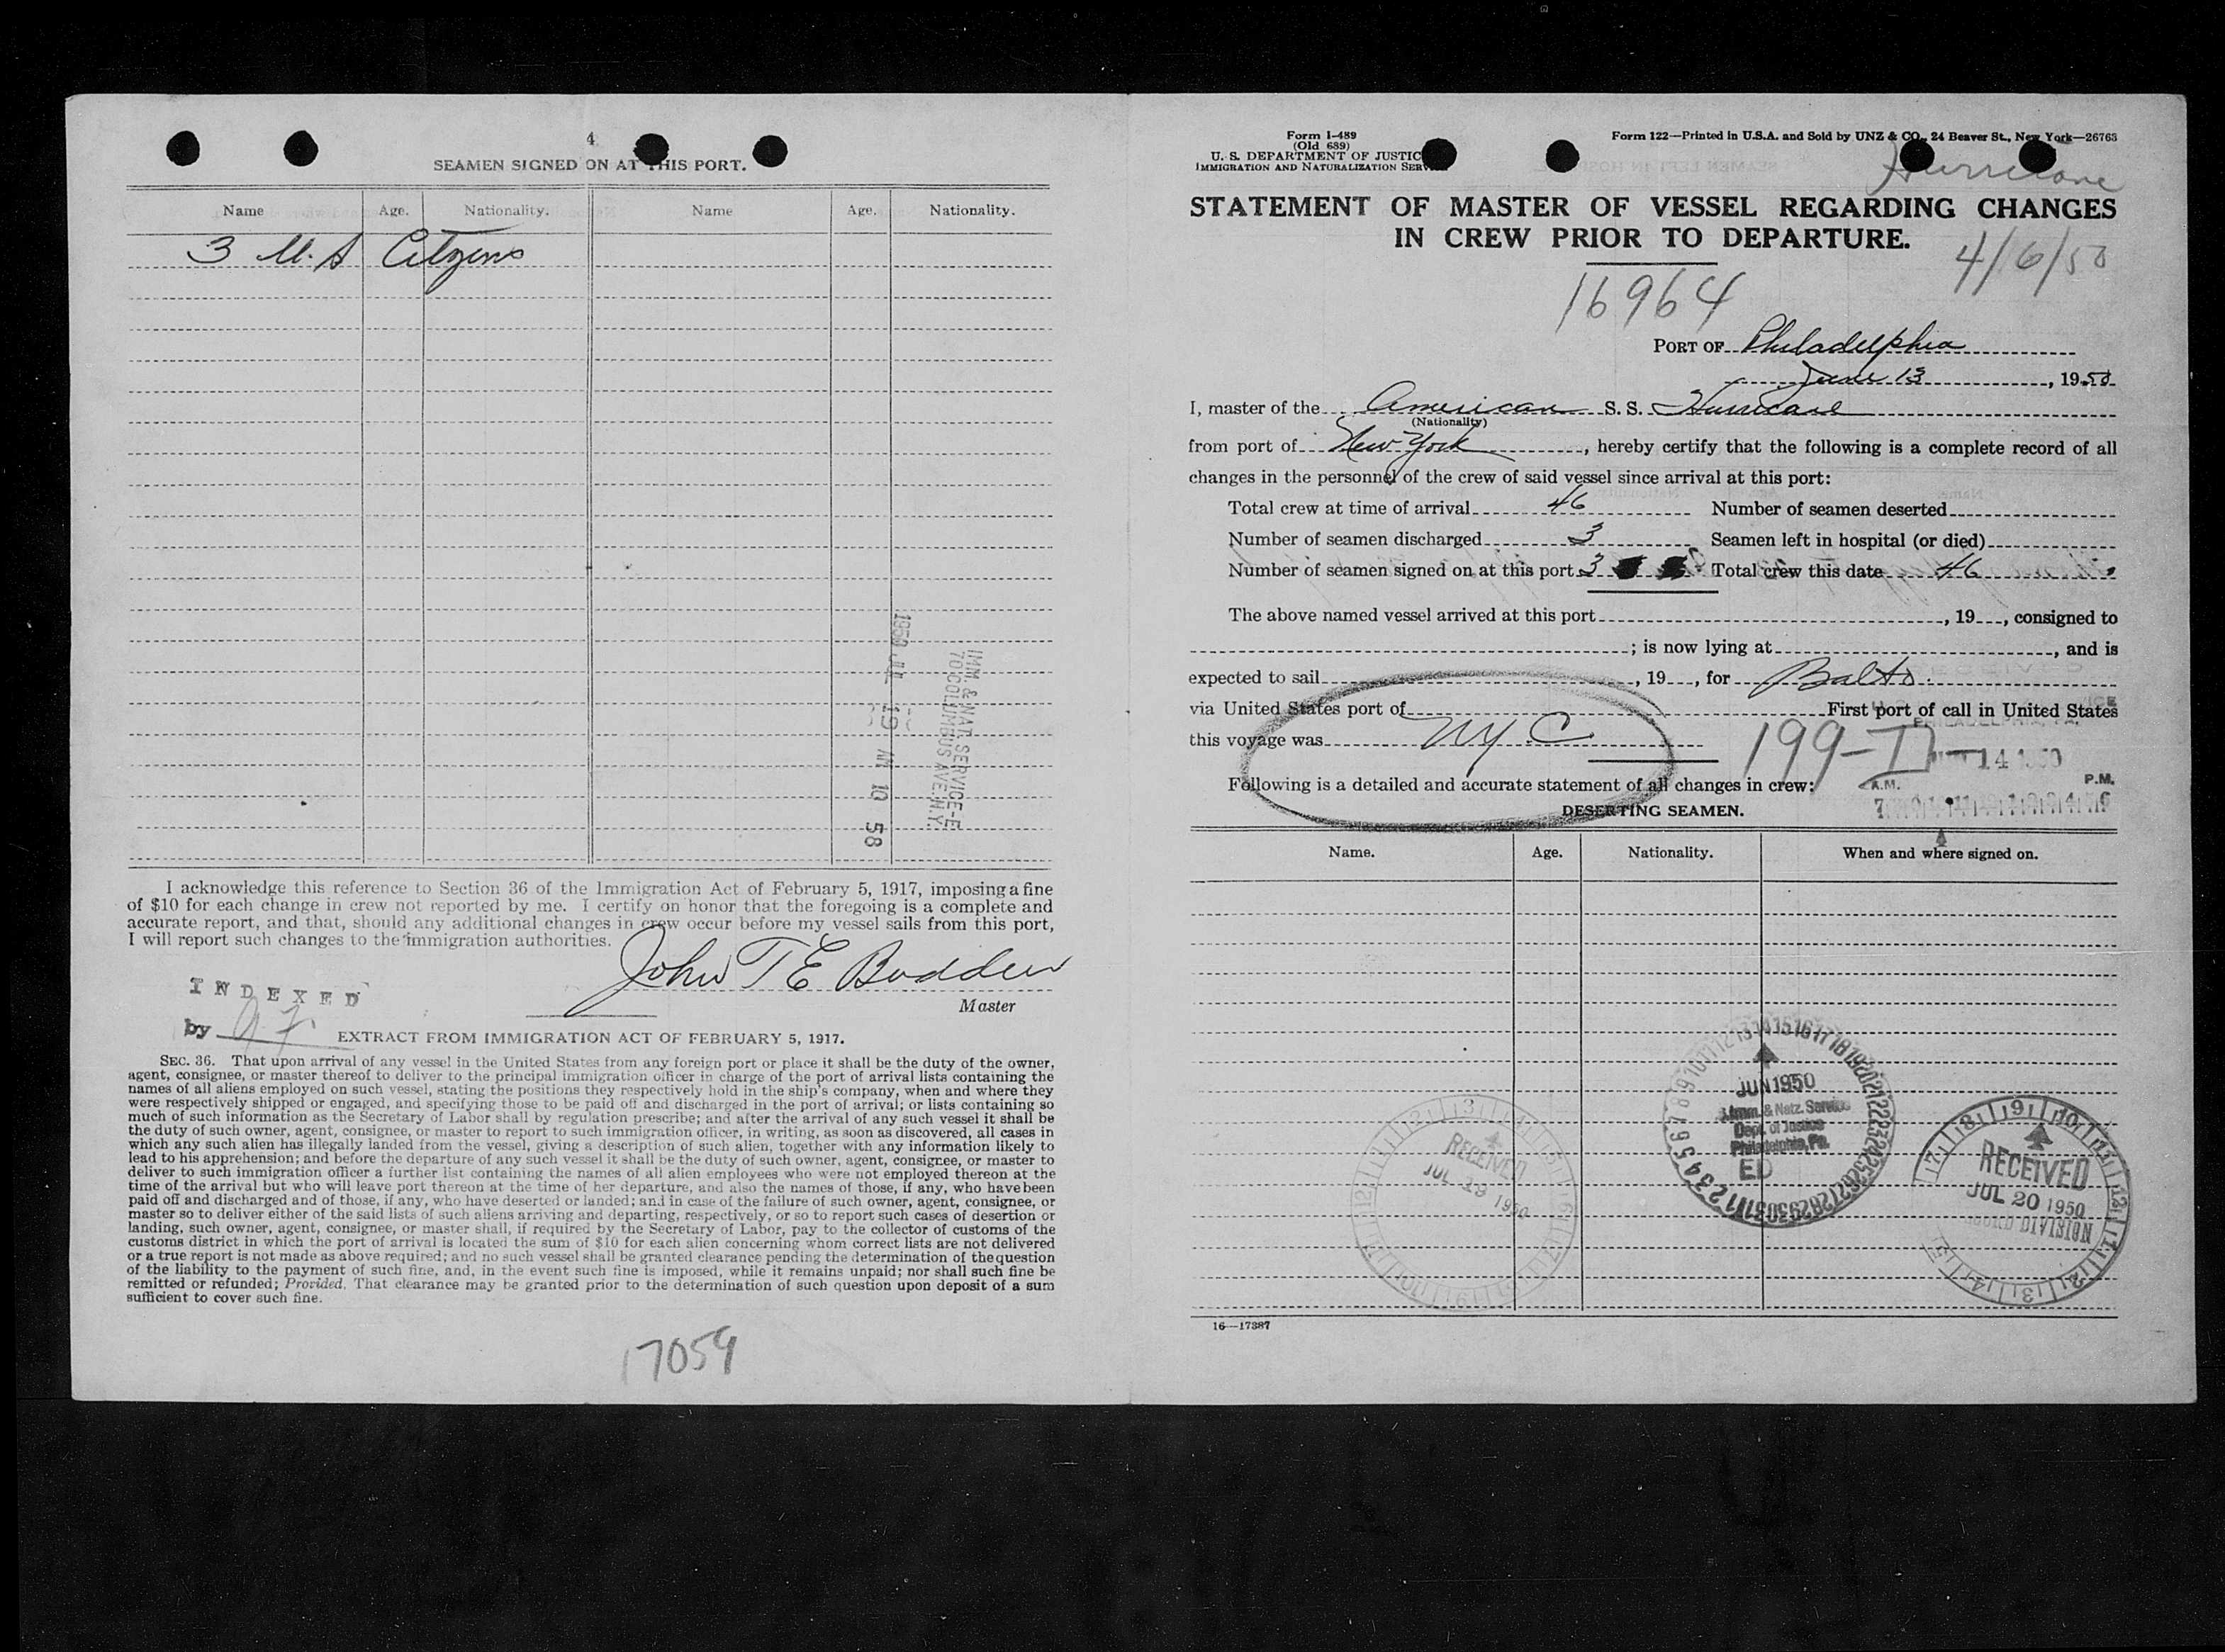 4
SEAMEN SIGNED ON AT THIS PORT.
Name Age. Nationality. Name Age. Nationality.
3 U.S Citzens
1950 JUL 19 AM 10 58
IMM. & NAT. SERVICE-E
70 COLUMBUS AVE. N.Y.
I acknowledge this reference to Section 36 of the Immigration Act of February 5, 1917, imposing a fine
of $10 for each change in crew not reported by me. I certify on honor that the foregoing is a complete and
accurate report, and that, should any additional changes in crew occur before my vessel sails from this port,
I will report such changes to the immigration authorities.
John T E Bodden
Master
INDEXED
by
EXTRACT FROM IMMIGRATION ACT OF FEBRUARY 5, 1917.
SEC. 36. That upon arrival of any vessel in the United States from any foreign port or place it shall be the duty of the owner,
agent, consignee, or master thereof to deliver to the principal immigration officer in charge of the port of arrival lists containing the
names of all aliens employed on such vessel, stating the positions they respectively hold in the ship's company, when and where they
were respectively shipped or engaged, and specifying those to be paid off and discharged in the port of arrival; or lists containing so
much of such information as the Secretary of Labor shall by regulation prescribe; and after the arrival of any such vessel it shall be
the duty of such owner, agent, consignee, or master to report to such immigration officer, in writing, as soon as discovered, all cases in
which any such alien has illegally landed from the vessel, giving a description of such alien, together with any information likely to
lead to his apprehension; and before the departure of any such vessel it shall be the duty of such owner, agent, consignee, or master to
deliver to such immigration officer a further list containing the names of all alien employees who were not employed thereon at the
time of the arrival but who will leave port thereon at the time of her departure, and also the names of those, if any, who have been
paid off and discharged and of those, if any, who have deserted or landed; and in case of the failure of such owner, agent, consignee, or
master so to deliver either of the said lists of such aliens arriving and departing, respectively, or so to report such cases of desertion or
landing, such owner, agent, consignee, or master shall, if required by the Secretary of Labor, pay to the collector of customs of the
customs district in which the port of arrival is located the sum of $10 for each alien concerning whom correct lists are not delivered
or a true report is not made as above required; and no such vessel shall be granted clearance pending the determination of the question
of the liability to the payment of such fine, and, in the event such fine is imposed, while it remains unpaid; nor shall such fine be
remitted or refunded; Provided, That clearance may be granted prior to the determination of such question upon deposit of a sum
sufficient to cover such fine.
17059
Form I-489
(Old 689)
U. S. DEPARTMENT OF JUSTICE
IMMIGRATION AND NATURALIZATION SERVICE
Form 122—Printed in U.S.A. and Sold by UNZ & CO., 24 Beaver St., New York—26763
Hurricane
STATEMENT OF MASTER OF VESSEL REGARDING CHANGES
IN CREW PRIOR TO DEPARTURE.
4/6/50
16964
PORT OF Philadelphia
June 13, 1950
I, master of the American S. S. Hurricane
(Nationality)
from port of New York, hereby certify that the following is a complete record of all
changes in the personnel of the crew of said vessel since arrival at this port:
Total crew at time of arrival 46 Number of seamen deserted
Number of seamen discharged 3 Seamen left in hospital (or died)
Number of seamen signed on at this port 3 Total crew this date 46
The above named vessel arrived at this port, 19, consigned to
; is now lying at, and is
expected to sail, 19, for Balto.
via United States port of First port of call in United States
this voyage was NYC
199-I
14 1950
Following is a detailed and accurate statement of all changes in crew:
A.M. P.M.
DESERTING SEAMEN.
Name. Age. Nationality. When and where signed on.
JUN 1950
Imm. & Natz. Service
Dept. of Justice
Philadelphia, Pa.
ED
RECEIVED
JUL 19 1950
RECEIVED
JUL 20 1950
DIVISION
16—17387